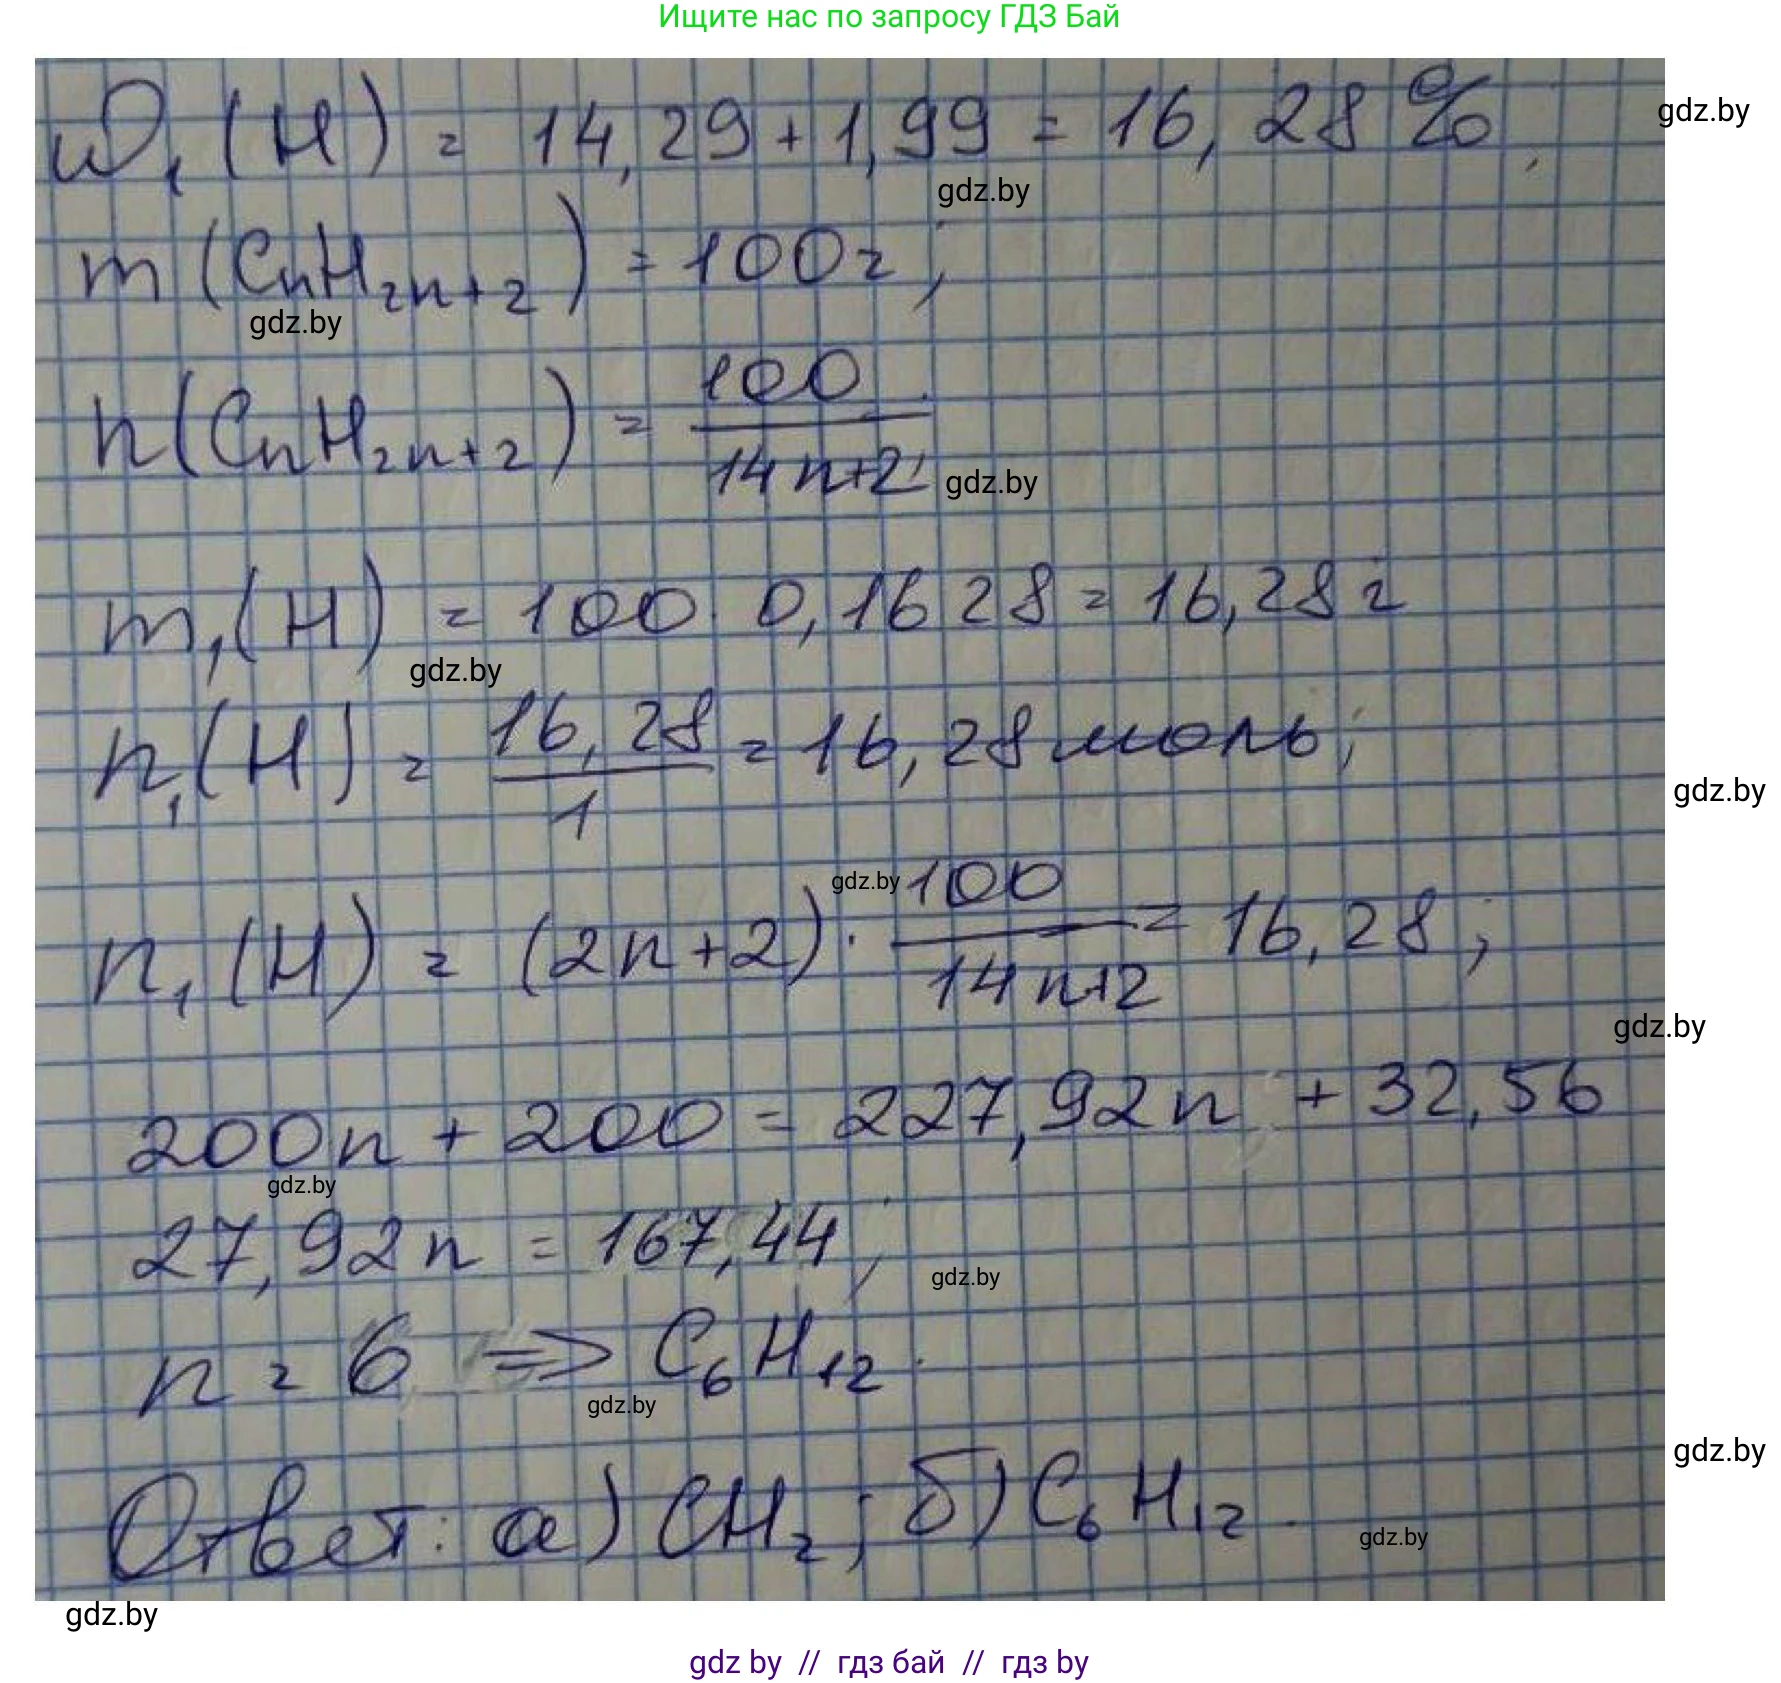 Ищите нас по запросу ГДЗ Бай
W₁(H) = 14,29 + 1,99 = 16,28 %,
gdz.by
gdz.by
m(CnH₂n₊₂) = 100г;
gdz.by
n(CnH₂n₊₂) = 100 / 14n+2;
gdz.by
m₁(H) = 100 · 0,1628 = 16,28 г
gdz.by
n₁(H) = 16,28 / 1 = 16,28 моль;
gdz.by
gdz.by
n₁(H) = (2n+2) · 100 / 14n+2 = 16,28;
gdz.by
200n + 200 = 227,92n + 32,56
gdz.by
27,92n = 167,44;
gdz.by
n = 6 => C₆H₁₂.
gdz.by
gdz.by
Ответ: а) CH₂; б) C₆H₁₂.
gdz.by
gdz.by
gdz by // гдз бай // гдз by